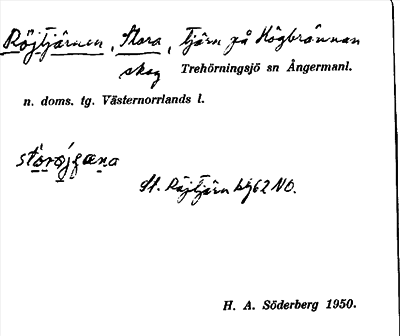 Röjtjärnen, Stora, tjärn på Högbrännan
skog Trehörningsjö sn Ångermanl.
n. doms. tg. Västernorrlands l.
St. Röjtjärn blg 62 NO.
H. A. Söderberg 1950.